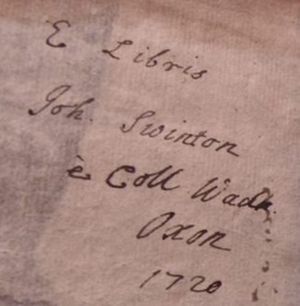 E Libris
Joh. Swinton
è Coll Wadh.
Oxon
1720